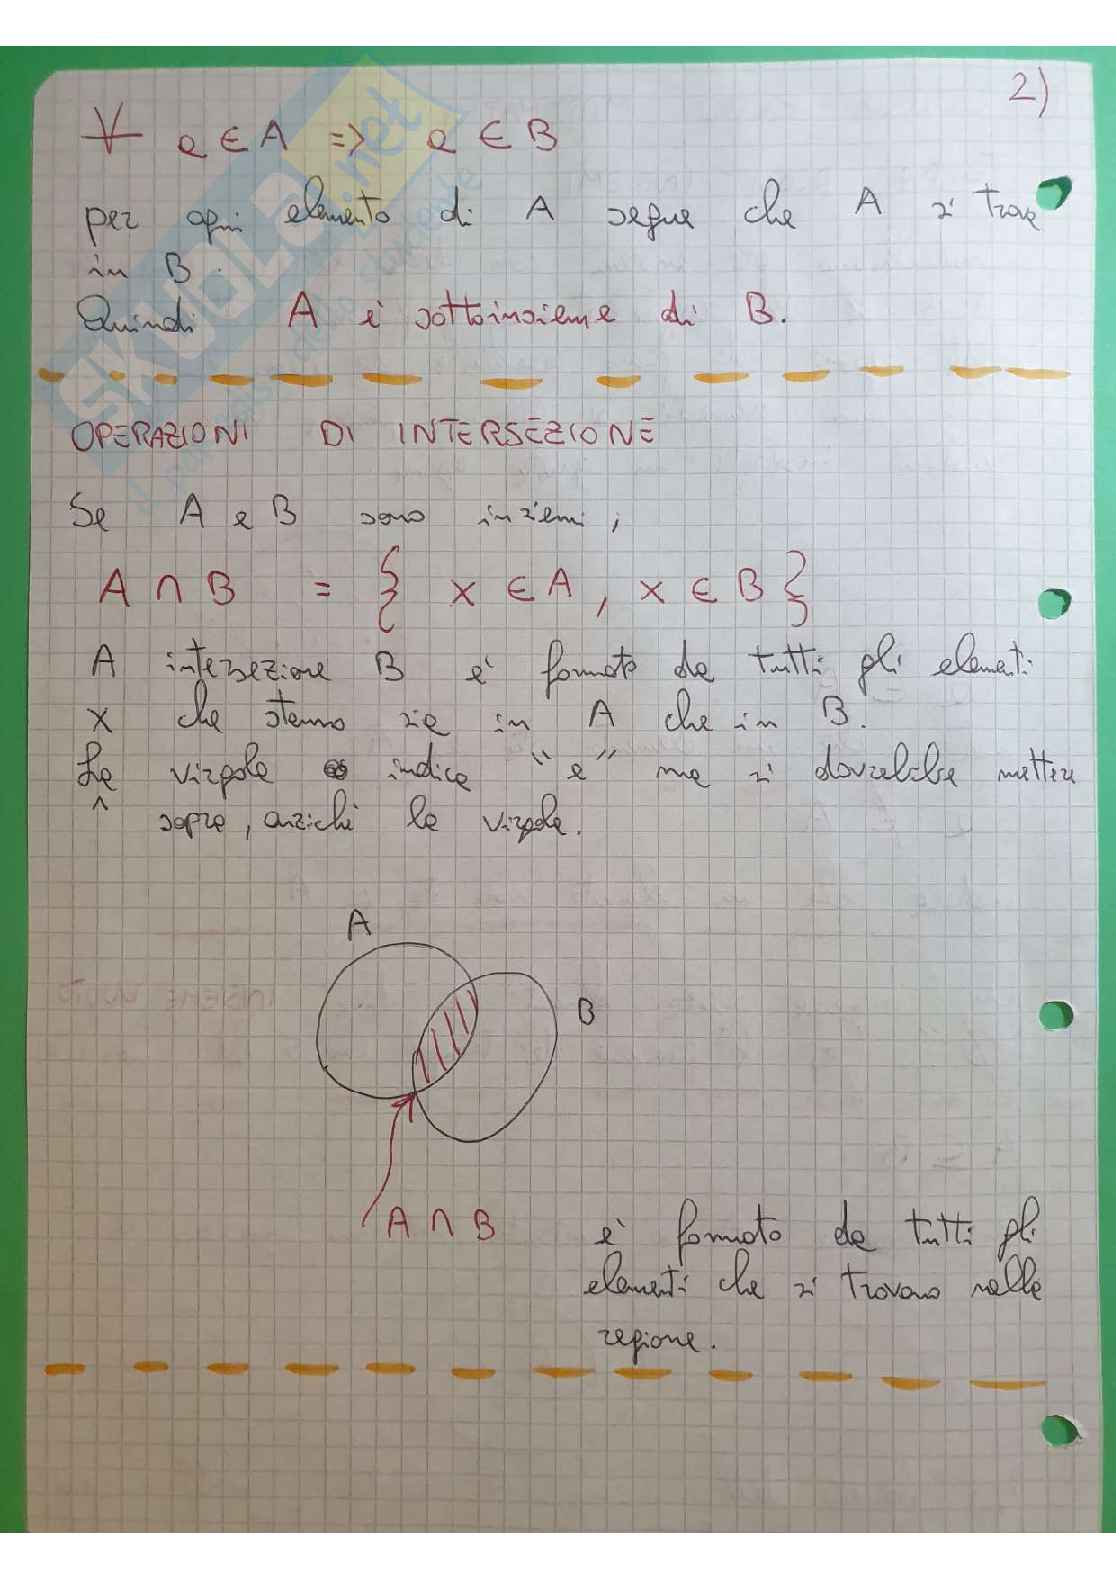 2)
∀ a ∈ A => a ∈ B
per ogni elemento di A segue che A si trova
in B.
Quindi A è sottoinsieme di B.
OPERAZIONI DI INTERSEZIONE
Se A e B sono insiemi,
A ∩ B = { x ∈ A, x ∈ B }
A intersezione B è formato da tutti gli elementi
x che stanno sia in A che in B.
La virgola indica "e" ma si dovrebbe mettere
^ sopra, anziché la virgola.
A
B
A ∩ B è formato da tutti gli
elementi che si trovano nella
regione.
SKUOLA.net